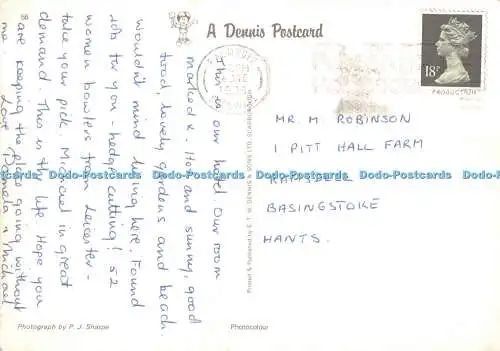 58
A Dennis Postcard
This is our hotel. Our room
marked x. Hot and sunny, good
food, lovely gardens and beach.
Wouldn't mind living here. Found
job for you - hedge cutting! 52
women bowlers from Leicester -
take your pick. Michael in great
demand. This is the life. Hope you
are keeping the place going without
me. Love Pamela & Michael
Photograph by P. J. Sharpe
Photocolour
Printed & Published by E. T. W. DENNIS & SONS LTD. SCARBOROUGH
18P
MR. M. ROBINSON
1 PITT HALL FARM
RAMSDELL
BASINGSTOKE
HANTS.
Dodo-Postcards Dodo-Postcards Dodo-Postcards Dodo-Postcards Dodo-Postcards